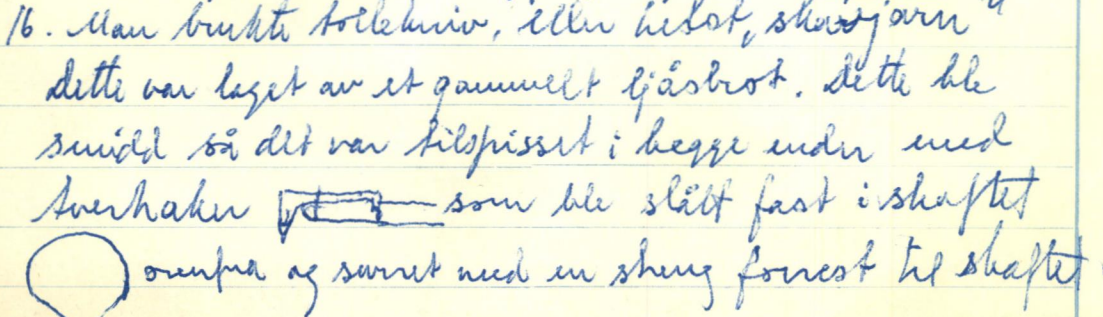 16. Man brukte tollekniv, eller helst, skavjarn"
dette var laget av et gammelt ljåsbrot. Dette ble
smidd så det var tilspisset i begge ender med
tverhaker som ble slått fast i skaftet
ovenfra og surret med en streng forrest til skaftet